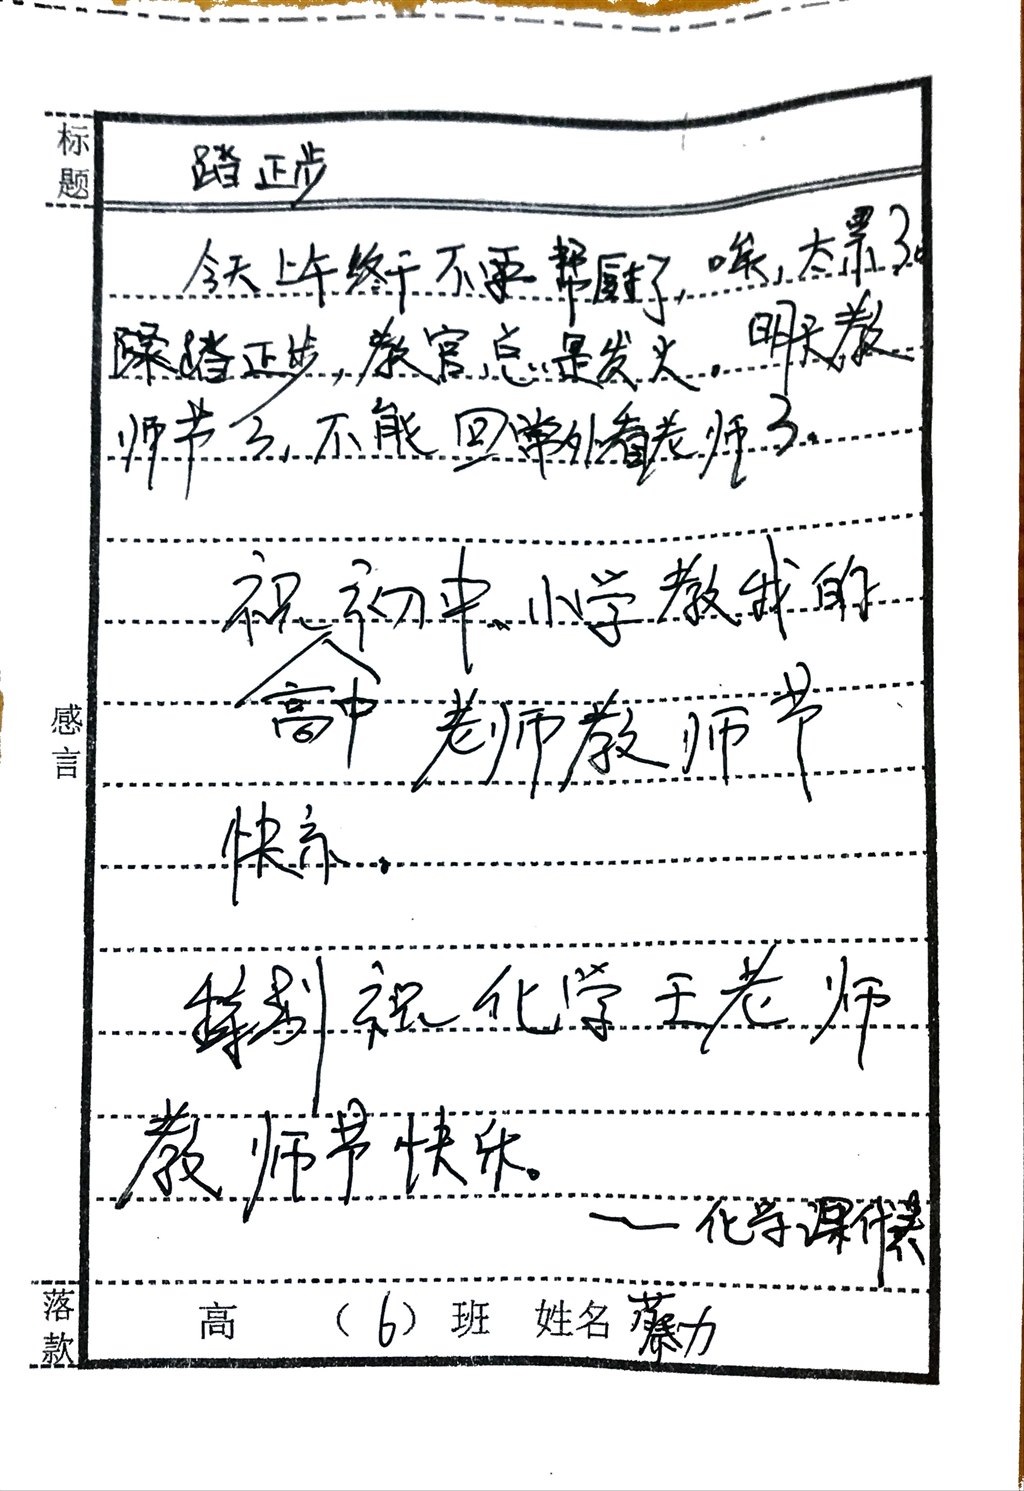 标题
踏正步
今天上午终于不要帮厨了,唉,太累了。
踩踏正步,教官总是发火.明天教
师节了,不能回常外看老师了.
祝初中、小学教我的
高中 老师教师节
快乐.
感言
特别祝化学王老师
教师节快乐。
——化学课代表
落款
高 (6)班 姓名 蔡力